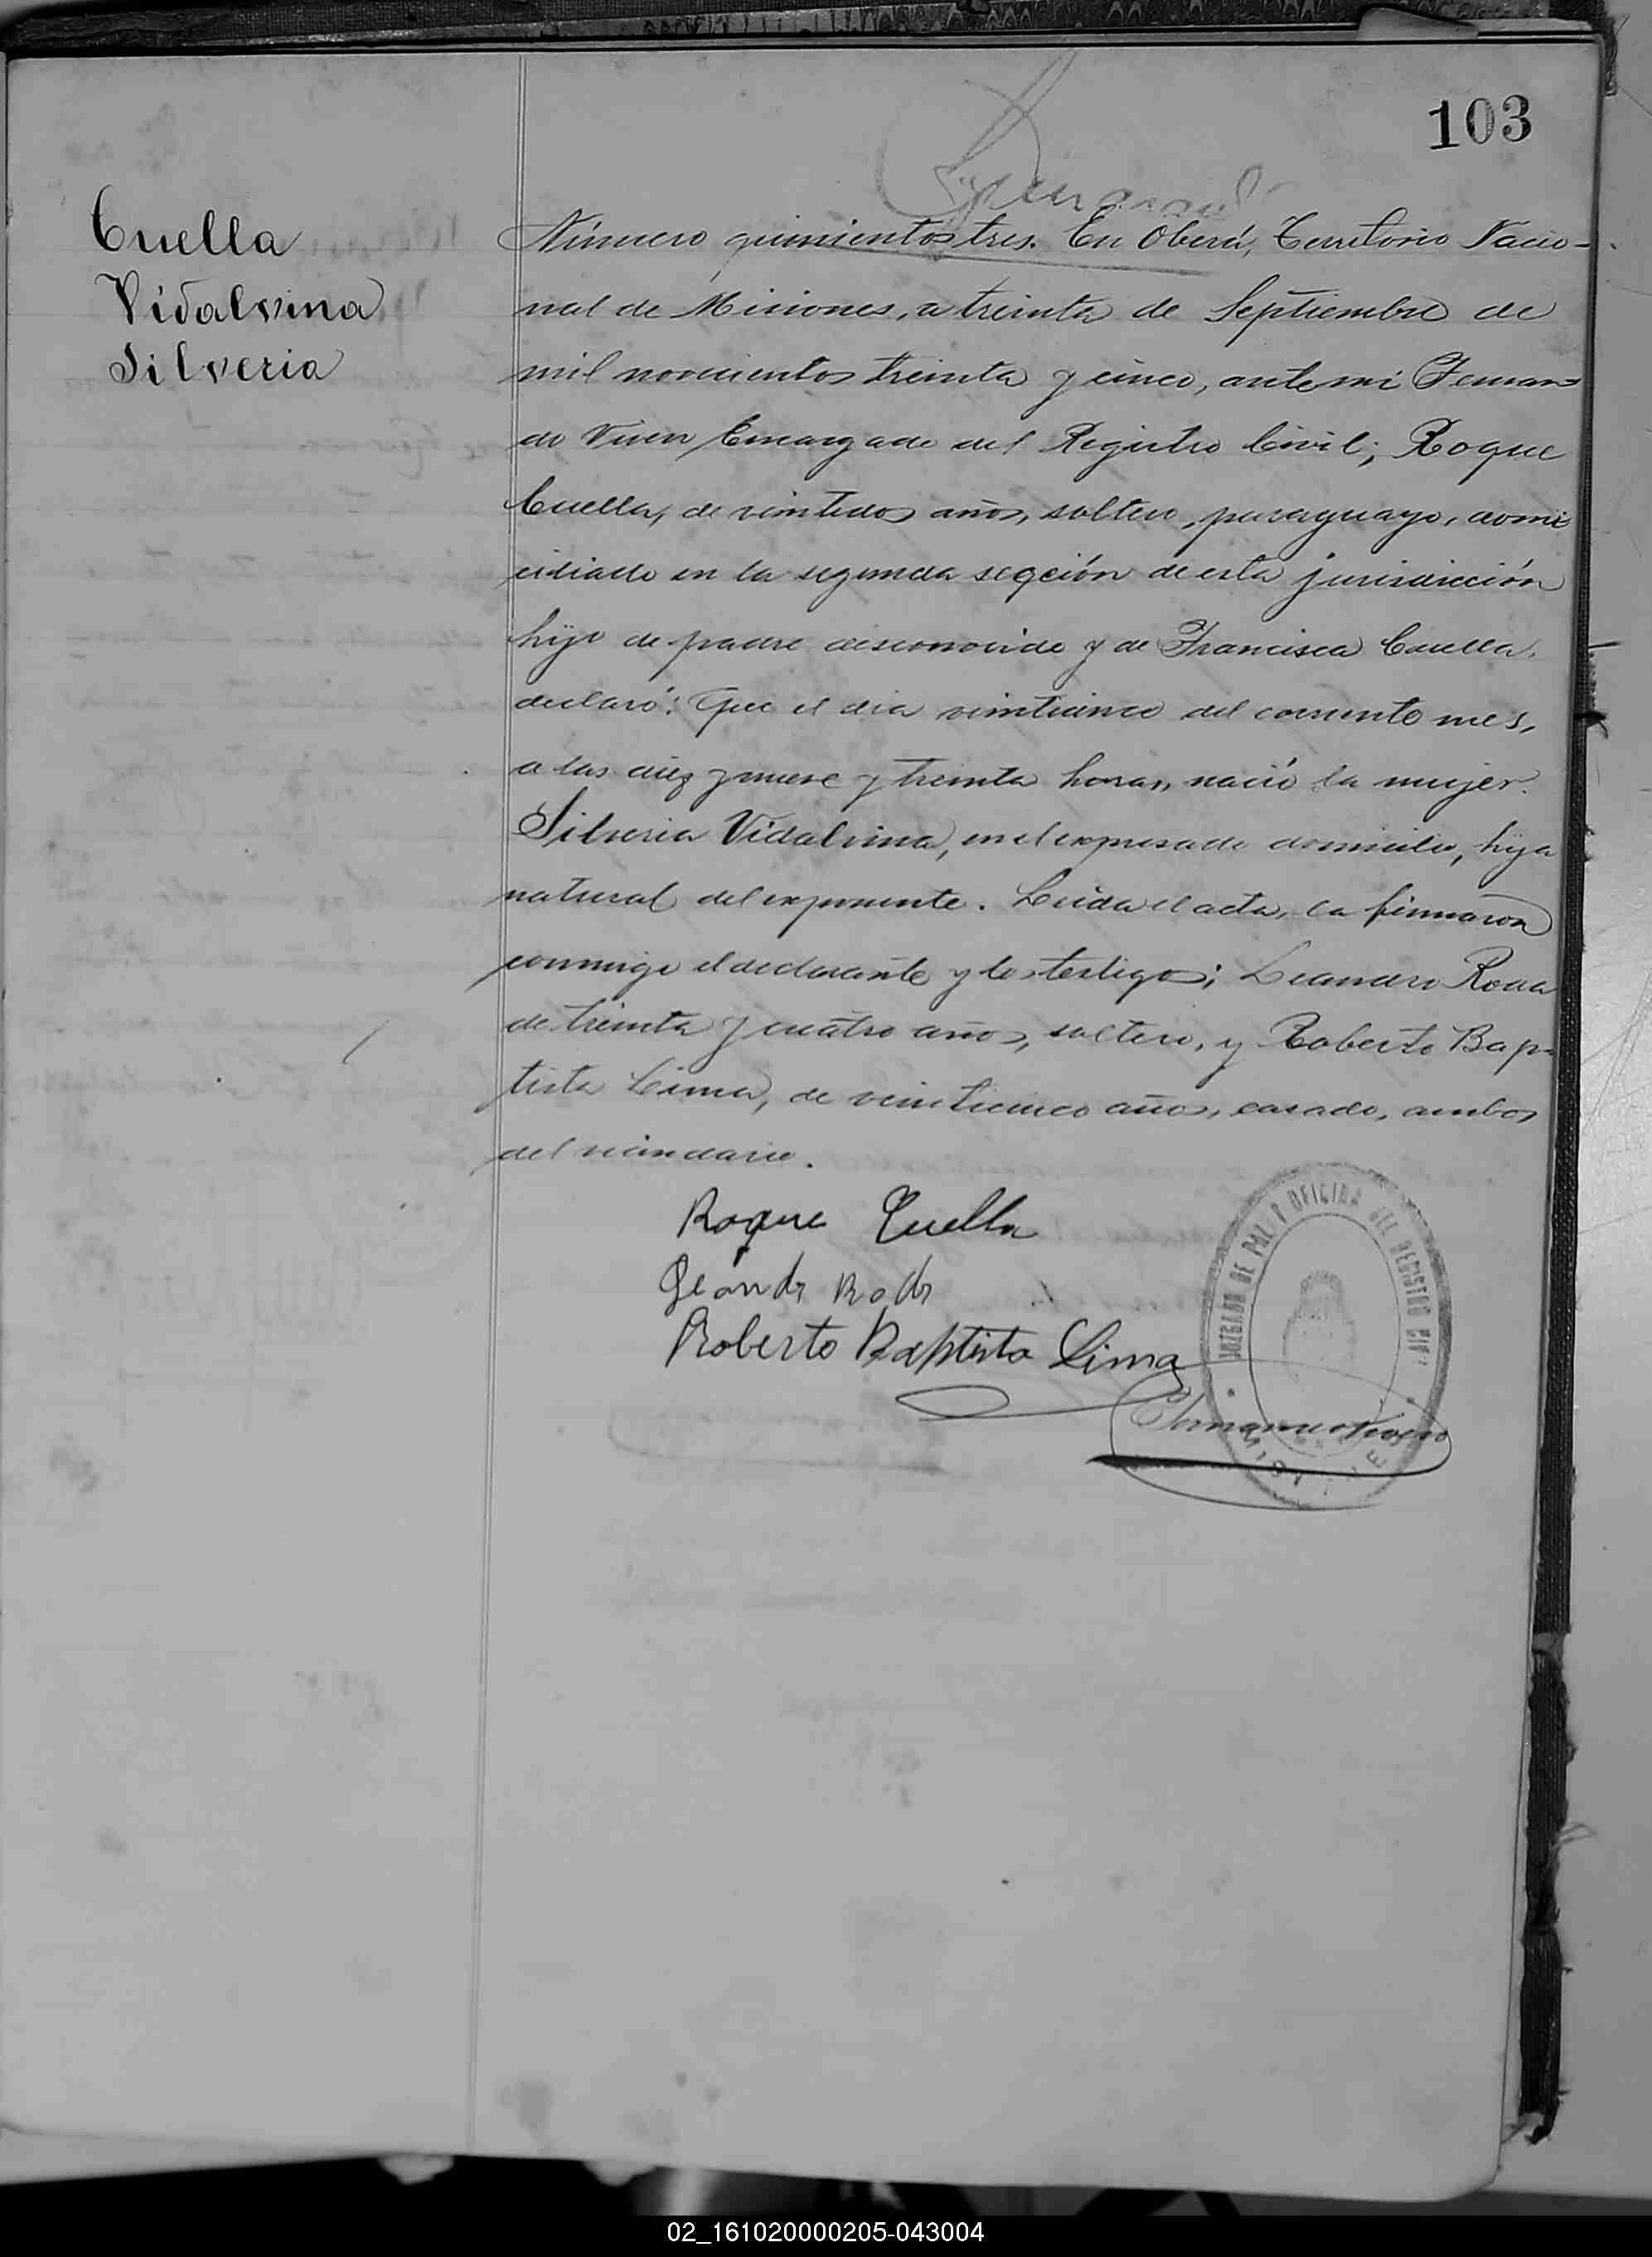 103
Cuella
Vidalvina
Silveria
Número quinientos tres. En Oberá, Territorio Nacio-
nal de Misiones, a treinta de Septiembre de
mil novecientos treinta y cinco, ante mi Fernan
do Encargado del Registro Civil; Roque
Cuella, de veintidos años, soltero, paraguayo, domi
ciliado en la segunda seqción de esta jurisdicción
hijo de padre desconocido y de Francisca Cuella.
declaró: Que el dia veinticinco del corriente mes,
a las diez y nueve y treinta horas, nació la mujer.
Silveria Vidalvina, en el expresado domicilio, hija
natural del exponente. Leida el acta, la firmaron
conmigo el declarante y los testigos; Leandro Roda
de treinta y cuatro años, soltero, y Roberto Bap-
tista Lima, de veinticinco años, casado, ambos
del vecindario.
Roque Cuella
Roberto Baptista Lima
JUZGADO DE PAZ Y OFICINA DEL REGISTRO CIVIL
MISIONES
02_161020000205-043004